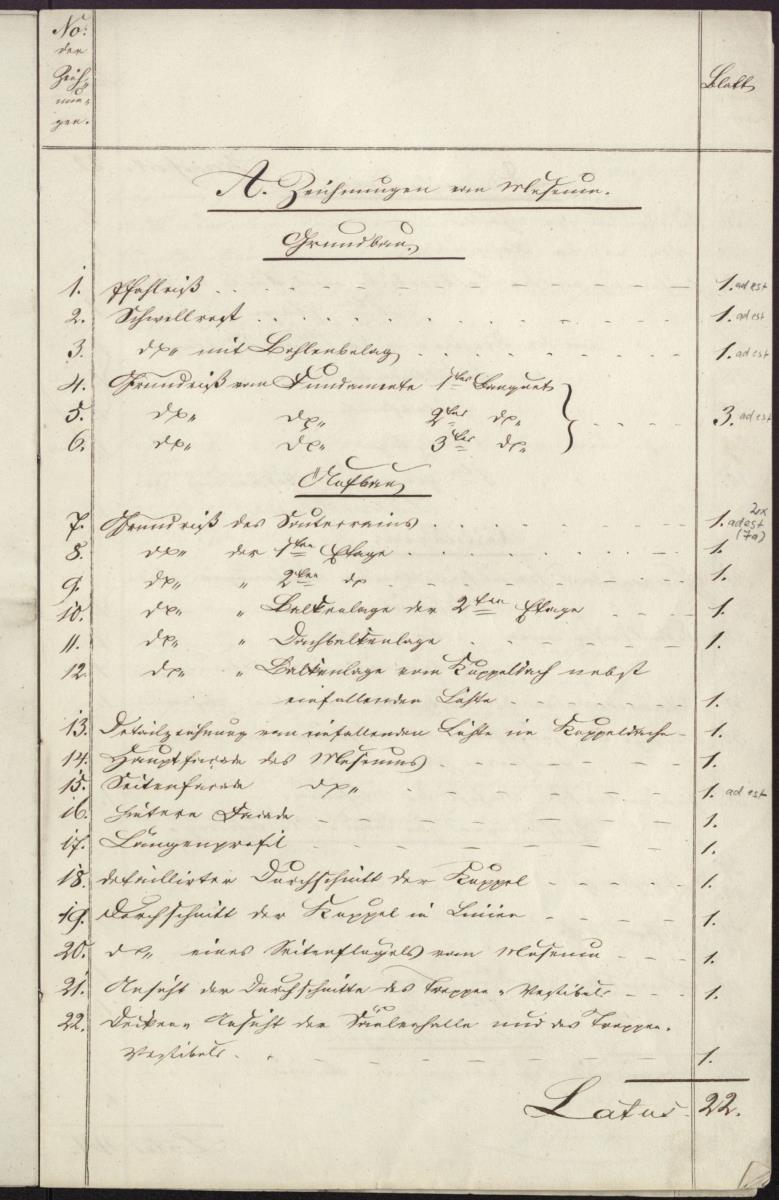 No:
der
Zeich-
nun-
gen.
Blatt
A. Zeichnungen vom Museum.
Grundbau.
1. Pfahlriß 1. ad est
2. Schwellrost 1. ad est
3. do mit Bohlenbelag 1. ad est
4. Grundriß vom Fundamente 1tes Banquet
5. do do 2tes do 3. ad est
6. do do 3tes do
Aufbau
7. Grundriß des Souterrains 1. ad est 2x (7a)
8. do der 1ten Etage 1.
9. do " 2ten do 1.
10. do " Balkenlage der 2ten Etage 1.
11. do " Dachbalkenlage 1.
12. do " Balkenlage vom Kuppeldach nebst
einfallenden Lichte 1.
13. Detailzeichnung vom einfallenden Lichte im Kuppeldache 1.
14. Hauptfacade des Museums 1.
15. Seitenfacade do 1. ad est
16. Hintere Facade 1.
17. Längenprofil 1.
18. detaillirter Durchschnitt der Kuppel 1.
19. Durchschnitt der Kuppel in Linien 1.
20. do eines Seitenflügels vom Museum 1.
21. Ansicht der Durchschnitte des Treppen-Vestibuls 1.
22. Decken-Ansicht der Säulenhalle und des Treppen-
Vestibuls. 1.
Latus 22.